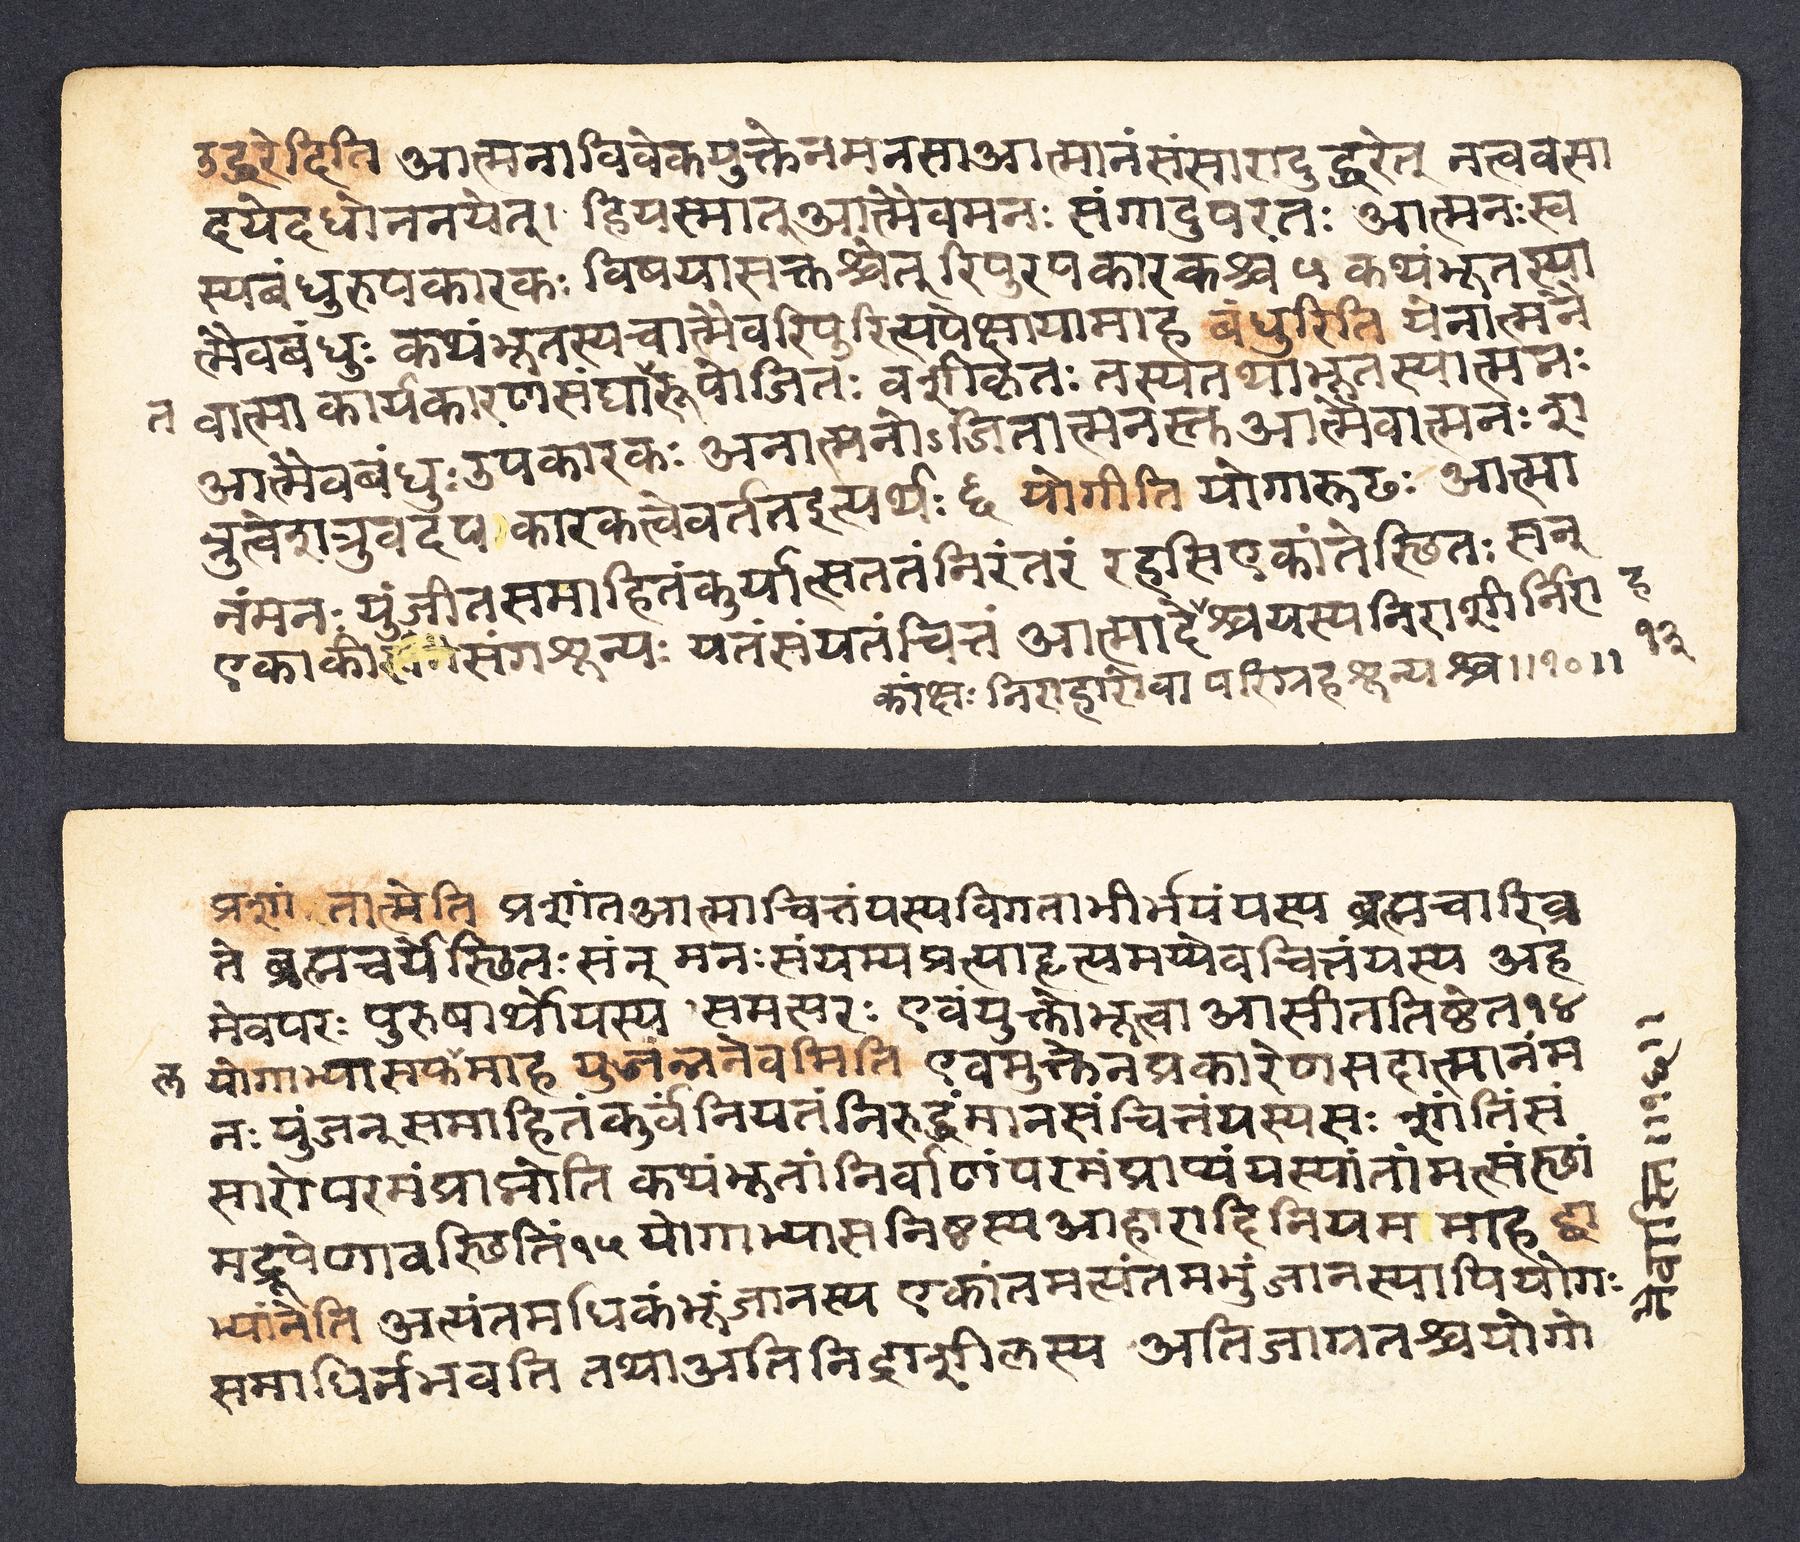 उद्धरेदिति आत्मनाविवेकयुक्तेनमनसाआत्मानंसंसारादुद्धरेत् नत्ववसा
दयेदधोननयेत्। हियस्मात्आत्मैवमनः संगादुपरतः आत्मनःस्व
स्यबंधुरुपकारकः विषयासक्तश्चेत् रिपुरपकारकश्च ५ कथंभूतस्या
त्मैवबंधुः कथंभूतस्यचात्मैवरिपुरित्यपेक्षायामाह बंधुरिति येनात्मनै
त वात्मा कार्यकारणसंघारूपोजितः वशीकृतः तस्यतथाभूतस्यात्मनः
आत्मैवबंधुःउपकारकः अनात्मनोऽजितात्मनस्तुआत्मैवात्मनः श
त्रुत्वेशत्रुवदपकारकत्वेवर्ततइत्यर्थः ६ योगीति योगारूढः आत्मा
नंमनः युंजीतसमाहितंकुर्यात्सततंनिरंतरं रहसिएकांतेस्थितः सन्
एकाकी संगशून्यः यतंसंयतंचित्तं आत्मादेहश्चयस्यनिराशीर्निरा ह
कांक्षः निराहारोवा परिग्रहशून्यश्च॥१०॥ १३
प्रशांतात्मेति प्रशांतआत्माचित्तंयस्यविगताभीर्भयंयस्य ब्रह्मचारिव्र
ते ब्रह्मचर्येस्थितः संन् मनःसंयम्यप्रत्याहृत्यमय्येवचित्तंयस्य अह
मेवपरः पुरुषार्थोयस्य समत्परः एवंयुक्तोभूत्वा आसीततिष्ठेत१४
ल योगाभ्यासफमाह युञ्जन्नेवमिति एवमुक्तेनप्रकारेणसदात्मानंम
नः युंजन्समाहितंकुर्वंनियतंनिरुद्धंमानसंचित्तंयस्यसः शांतिंसं
सारोपरमंप्राप्नोति कथंभूतांनिर्वाणंपरमंप्राप्यंयस्यांतांमत्संस्थां
मद्रूपेणावस्थितिं१५ योगाभ्यासनिष्ठस्यआहारादिनियममाह द्वा
भ्यांनेति अत्यंतमधिकंभुंजानस्य एकांतमत्यंतमभुंजानस्यापियोगः
समाधिर्नभवति तथाअतिनिद्राशीलस्य अतिजाग्रतश्चयोगो